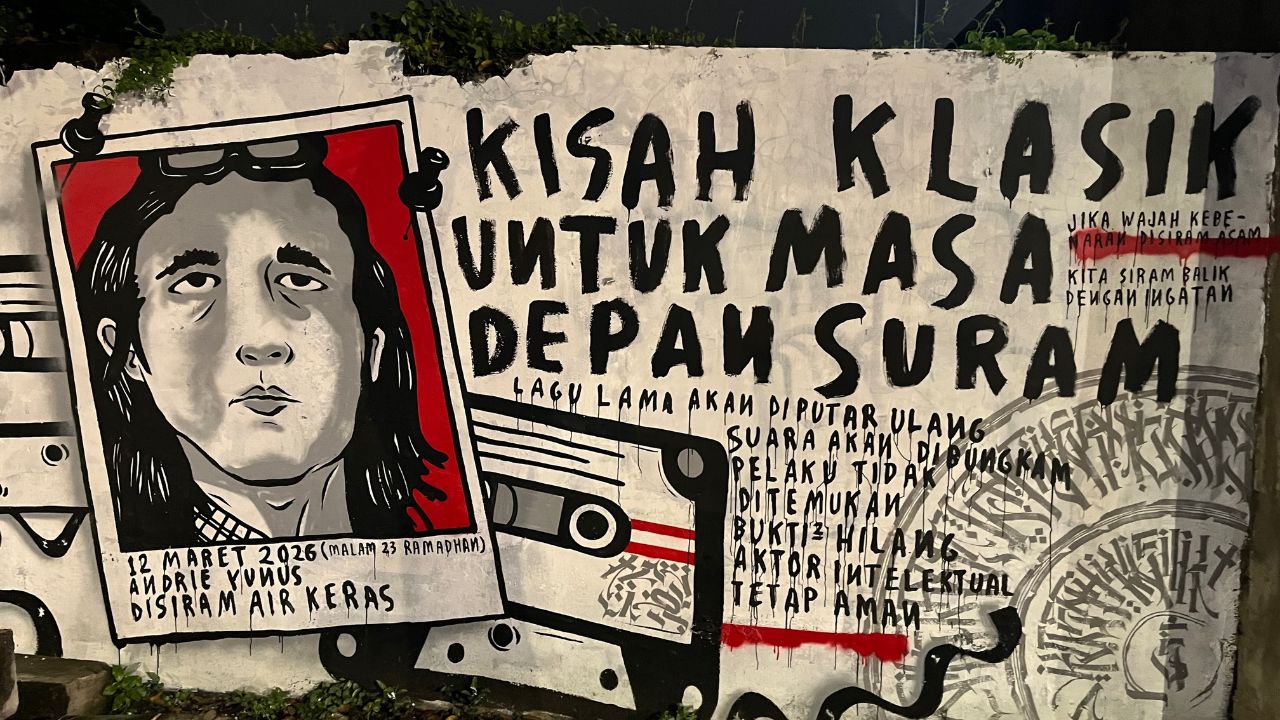 KISAH KLASIK
UNTUK MASA
DEPAN SURAM
JIKA WAJAH KEBE-
NARAN DISIRAM ASAM
KITA SIRAM BALIK
DENGAN INGATAN
LAGU LAMA AKAN DIPUTAR ULANG
SUARA AKAN DIBUNGKAM
PELAKU TIDAK
DITEMUKAN
BUKTI2 HILANG
AKTOR INTELEKTUAL
TETAP AMAN
12 MARET 2026 (MALAM 23 RAMADHAN)
ANDRIE YUNUS
DISIRAM AIR KERAS